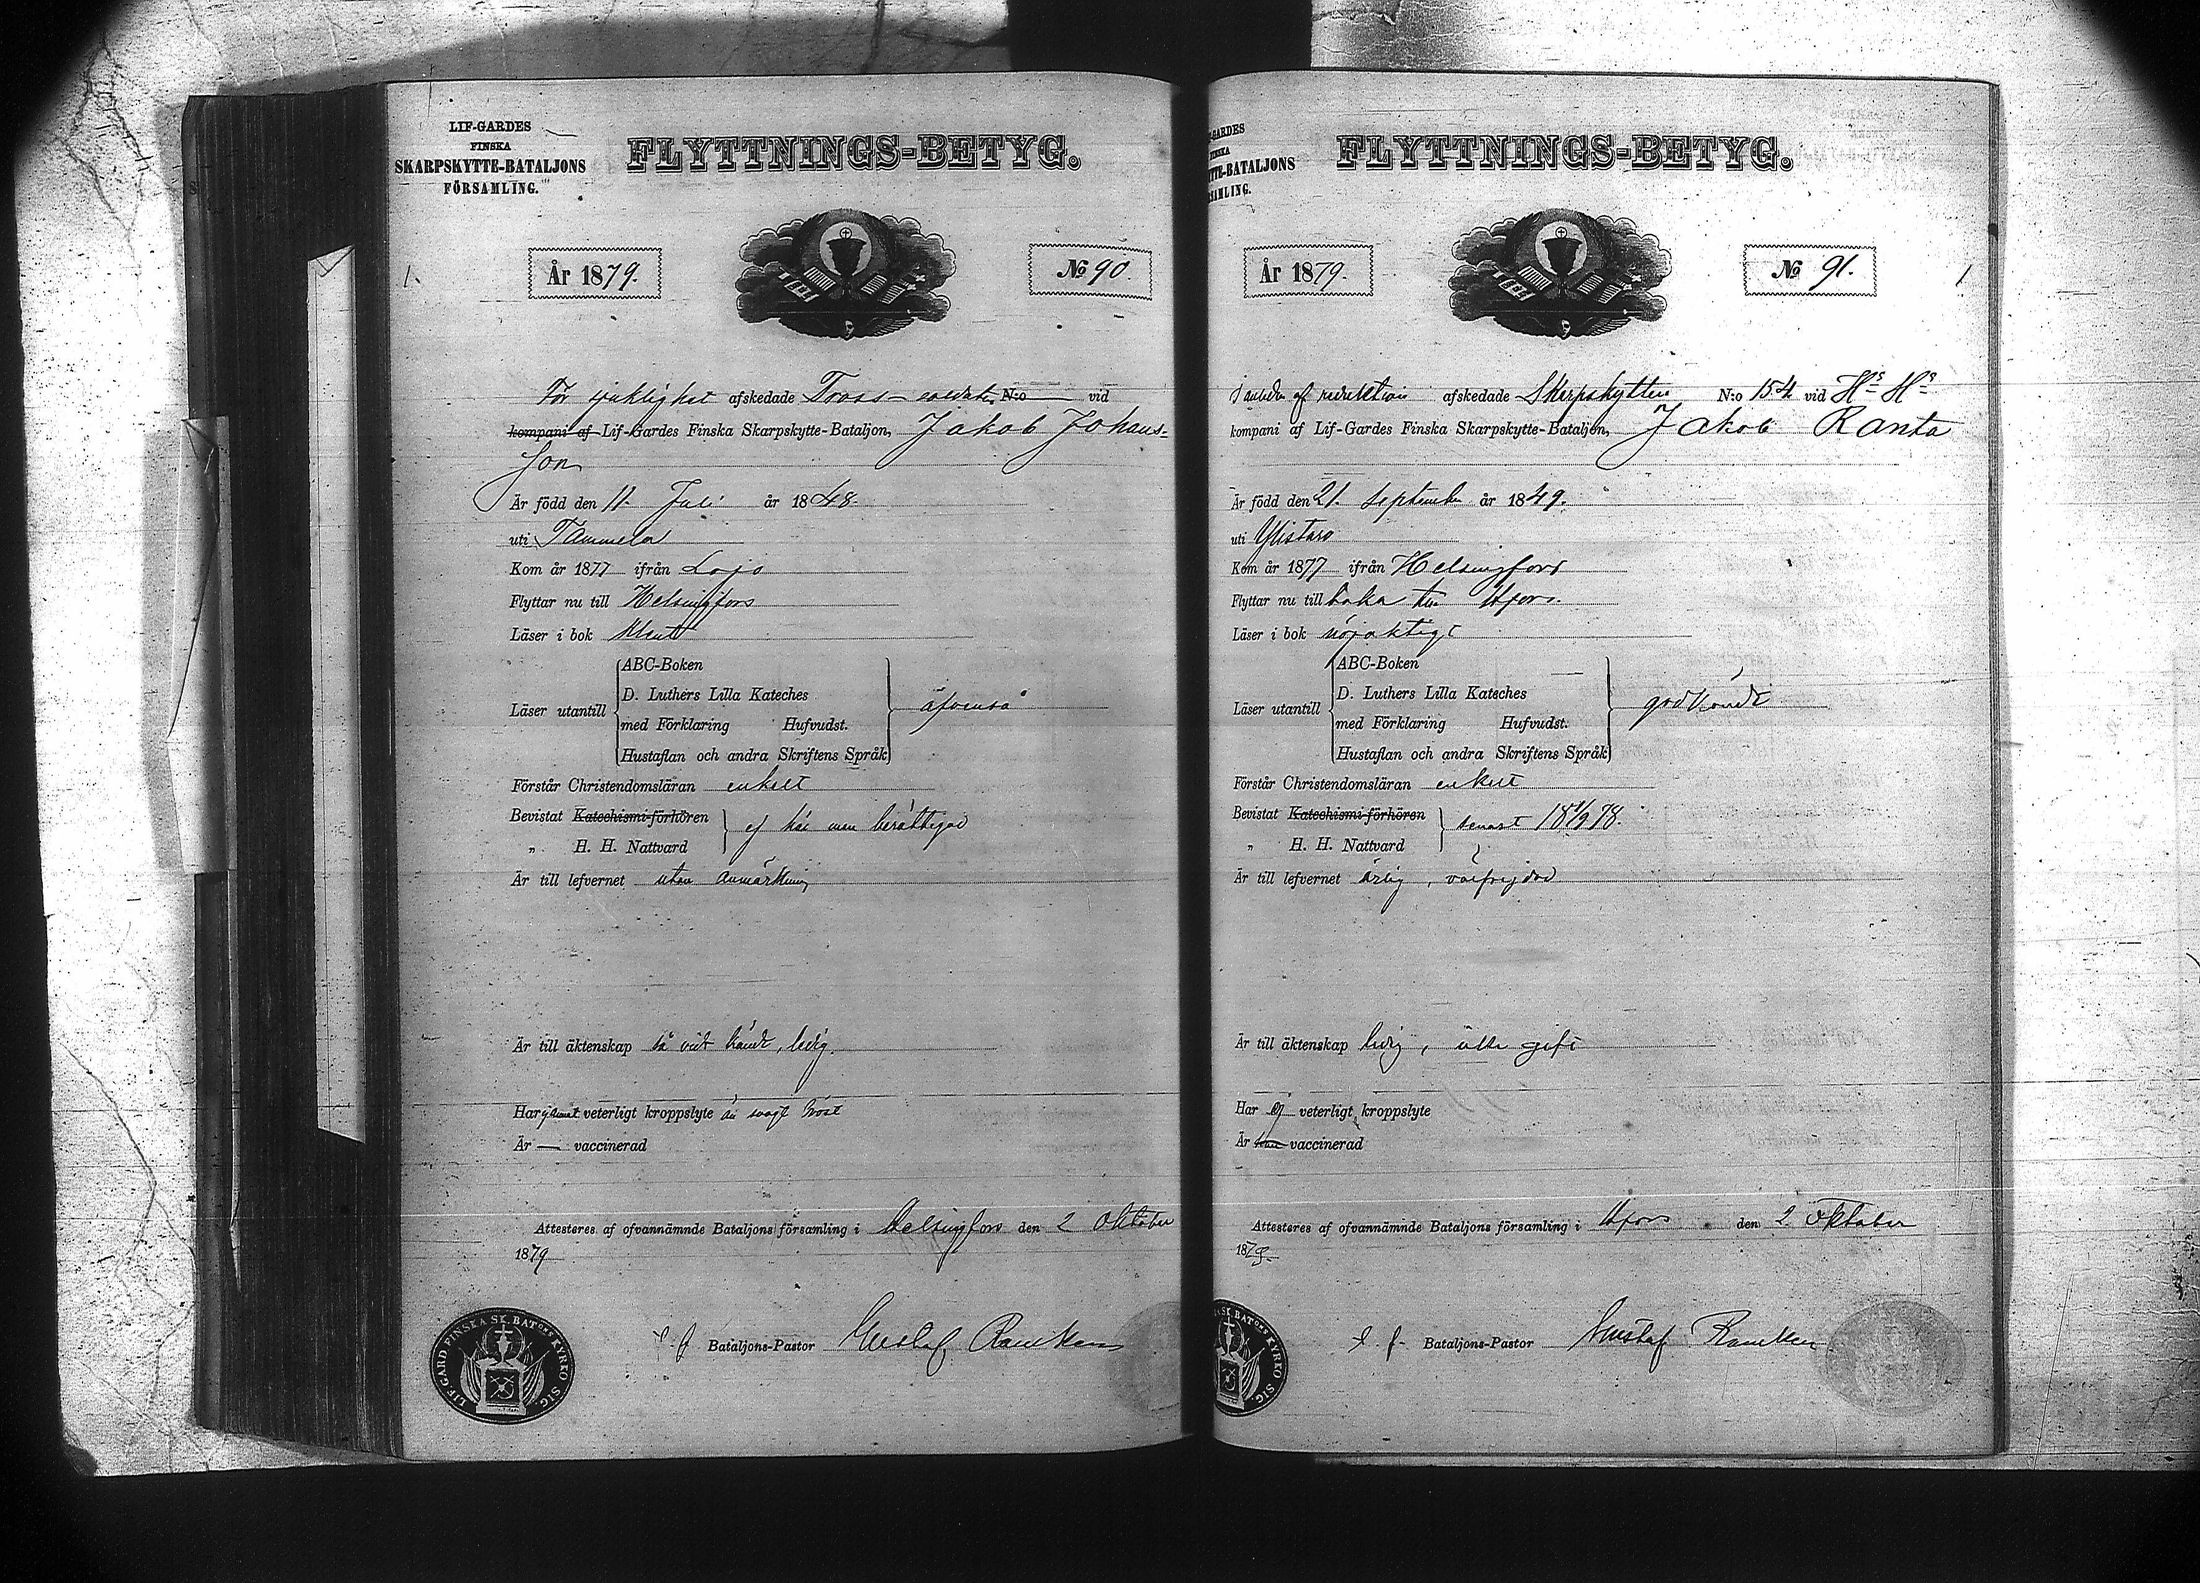 LIF-GARDES
FINSKA
SKARPSKYTTE-BATALJONS
FÖRSAMLING.
FLYTTNINGS-BETYG.
År 1879.
No 90.
För sjuklighet afskedade Tross-soldaten N:o vid
kompani af Lif-Gardes Finska Skarpskytte-Bataljon, Jakob Johans-
son
Är född den 11 Juli år 1848.
uti Tammela
Kom år 1877 ifrån Lojo
Flyttar nu till Helsingfors
Läser i bok klent
Läser utantill
ABC-Boken
D. Luthers Lilla Kateches
med Förklaring Hufvudst.
Hustaflan och andra Skriftens Språk
äfvenså
Förstår Christendomsläran enkelt
Bevistat Katechismi-förhören
„ H. H. Nattvard
ej här men berättigad
Är till lefvernet utan anmärkning
Är till äktenskap så vidt kändt, ledig.
Har veterligt kroppslyte
Är — vaccinerad
Attesteras af ofvannämnde Bataljons församling i Helsingfors den 2 Oktober
1879
LIF.GARD.FINSKA SK.BATONS KYRKO SIG.
t. f. Bataljons-Pastor Gustaf
GARDES
FINSKA
TTE-BATALJONS
RSAMLING.
FLYTTNINGS-BETYG.
År 1879.
No 91.
af reduktion afskedade Skarpskytten N:o 154 vid Hs Hs
kompani af Lif-Gardes Finska Skarpskytte-Bataljon, Jakob Ranta
Är född den 21. September år 1849.
uti Ylistaro
Kom år 1877 ifrån Helsingfors
Flyttar nu till baka till Hfors.
Läser i bok nöjaktigt
Läser utantill
ABC-Boken
D. Luthers Lilla Kateches
med Förklaring Hufvudst.
Hustaflan och andra Skriftens Språk
godkändt
Förstår Christendomsläran enkelt
Bevistat Katechismi-förhören
„ H. H. Nattvard
senast
Är till lefvernet ärlig, välfrejdad
Är till äktenskap ledig, gift
Har ej veterligt kroppslyte
Är vaccinerad
Attesteras af ofvannämnde Bataljons församling i Hfors den 2. Oktober
1879.
SK.BATONS KYRKO SIG.
t. f. Bataljons-Pastor Gustaf